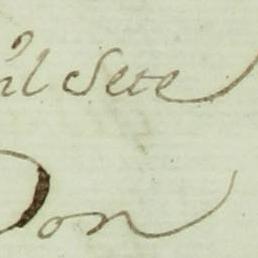 mil Sete
Don